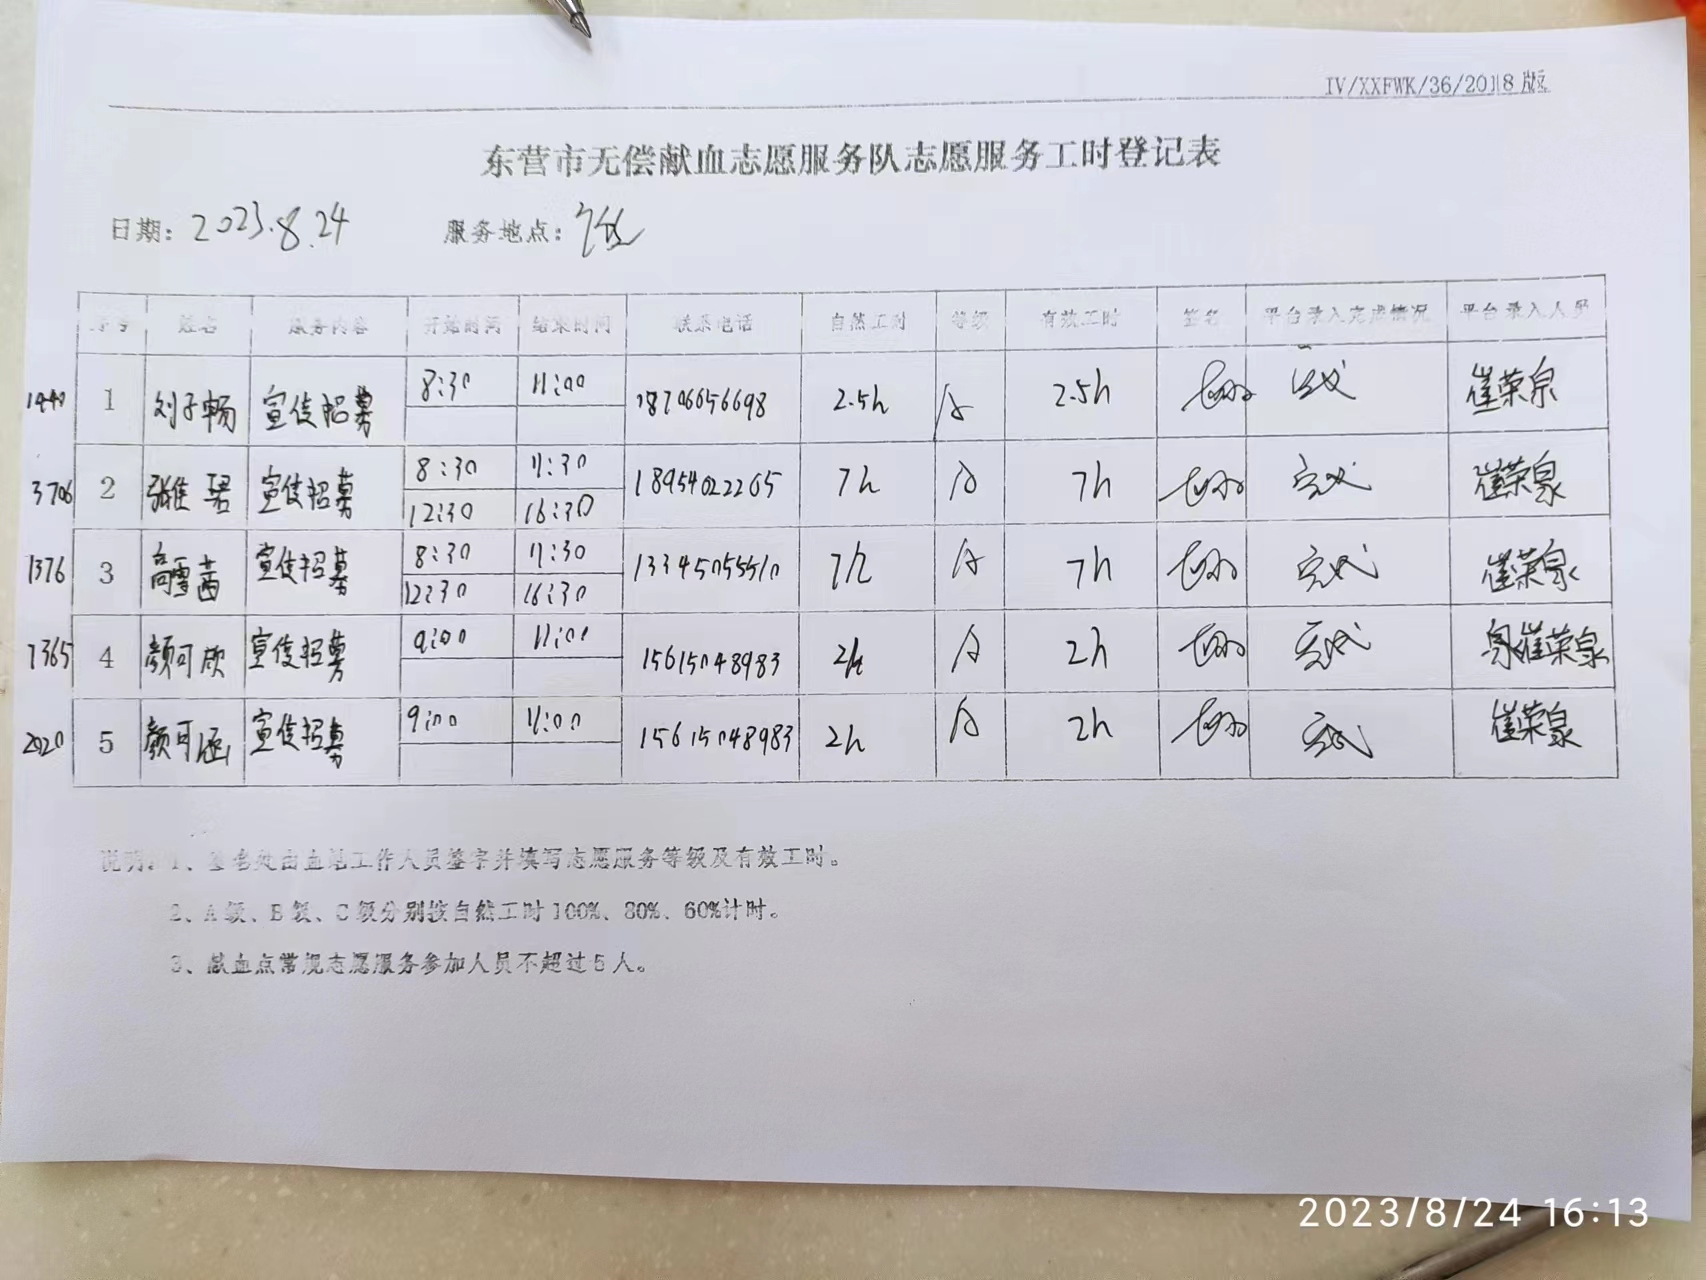 IV/XXFWK/36/2018版
东营市无偿献血志愿服务队志愿服务工时登记表
日期: 2023.8.24 服务地点:
序号 姓名 服务内容 开始时间 结束时间 联系电话 自然工时 等级 有效工时 签名 平台录入完成情况 平台录入人员
1 刘子畅 宣传招募 8:30 11:00 18706656698 2.5h A 2.5h 完成 崔荣泉
3706 2 宣传招募 8:30 11:30 18954022265 7h A 7h 完成 崔荣泉
12:30 16:30
1376 3 高雪茜 宣传招募 8:30 11:30 13345055510 7h A 7h 完成 崔荣泉
12:30 16:30
1365 4 颜可欣 宣传招募 9:00 11:00 15615048983 2h A 2h 完成 泉崔荣泉
2020 5 颜可涵 宣传招募 9:00 11:00 15615048983 2h A 2h 完成 崔荣泉
说明:1、签名处由血站工作人员签字并填写志愿服务等级及有效工时。
2、A级、B级、C级分别按自然工时100%、80%、60%计时。
3、献血点常规志愿服务参加人员不超过5人。
2023/8/24 16:13